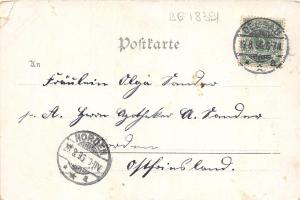 BG 18321
Postkarte
An
Fräulein Olga Sander
p. A. Herrn Apotheker A. Sander
Norden
Ostfriesland.
NORDEN